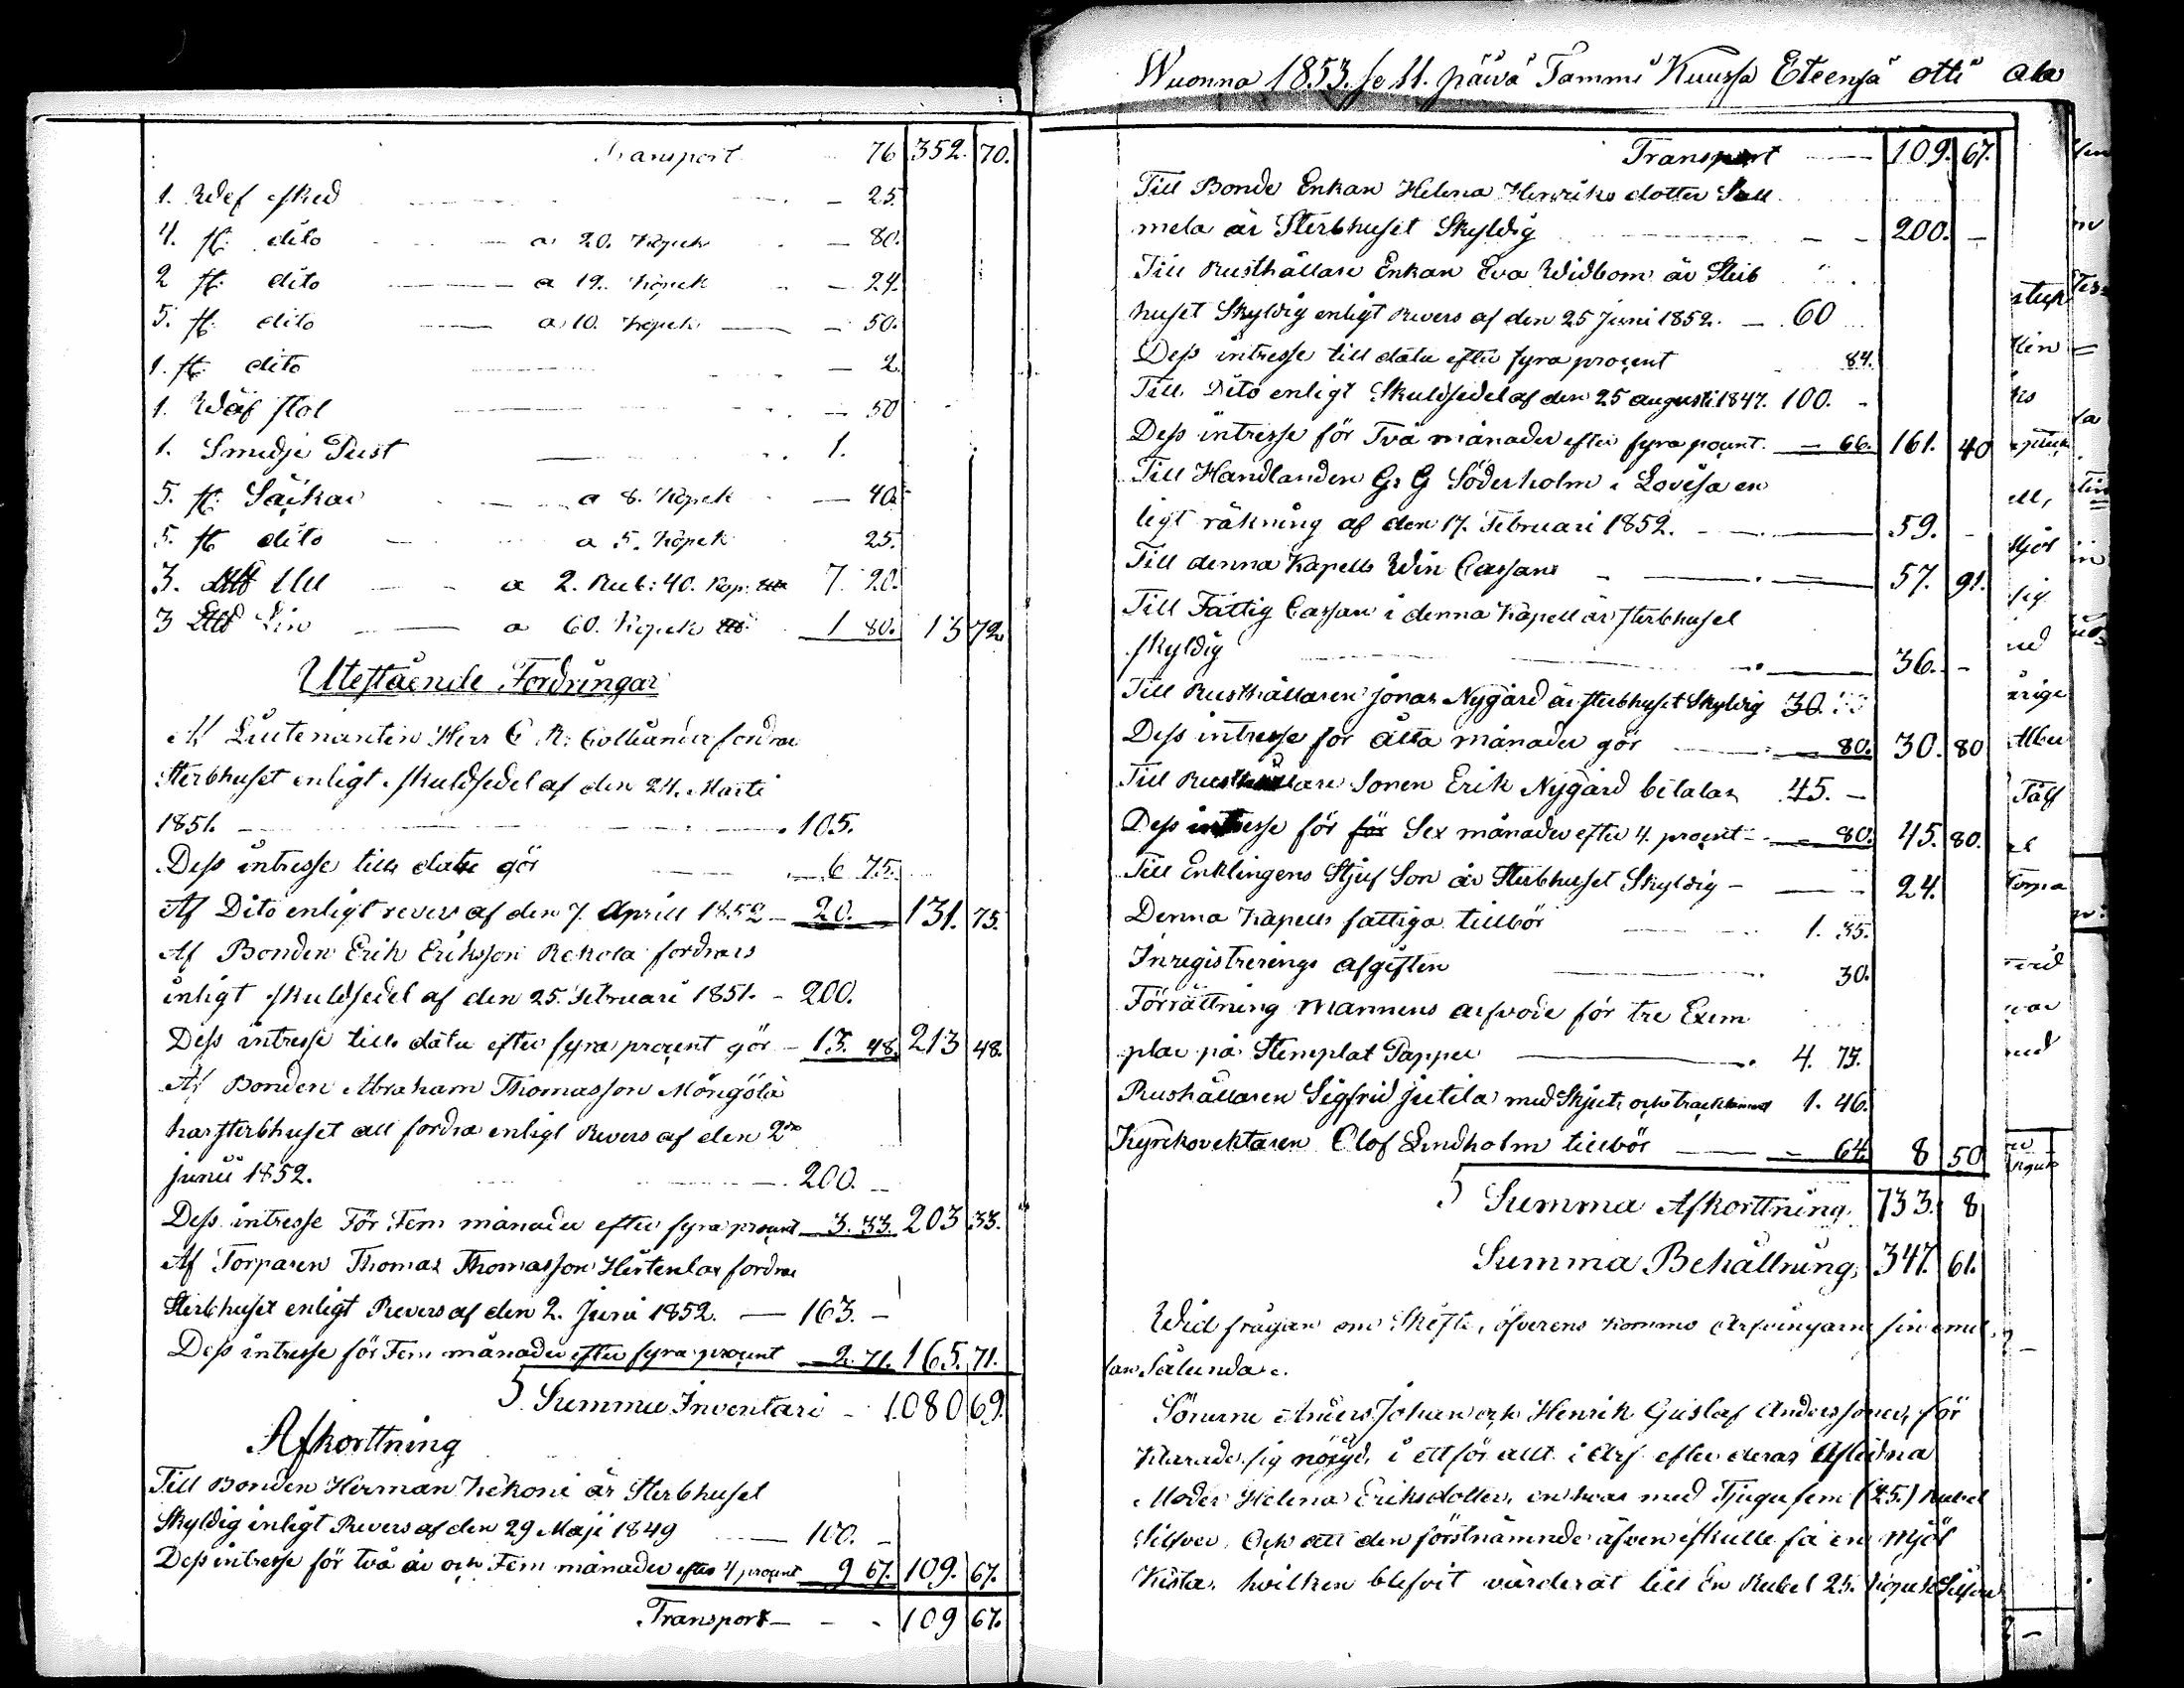 Transport 76 352. 70.
1. Wäf sked - 25.
4. st: dito a 20. Kopek - 80.
2 st: dito a 12. Kopek - 24.
5. st: dito a 10. Kopek - 50.
1. st: dito - 2
1. Wäf stol - 50
1. Smidje Pust 1.
5. st: Säckar a 8. Kopek - 40.
5. st dito a 5. Kopek 25.
3. Ull a 2. Rub: 40. Kop: 7. 20.
3 Lin a 60. Kopek 1 80. 13 72.
Utestående Fordringar
Af Lieutenanten Herr C. R: fordrar
Sterbhuset enligt skuldsedel af den 24. Marti
1851. 105.
Dess intresse till datu gör 6 75.
Af Dito enligt revers af den 7. Aprill 1852 - 20. 131. 75.
Af Bonden Erik Eriksson Rekola fordrars
enligt skuldsedel af den 25. Februari 1851. - 200.
Dess intresse till datu efter fyra procent gör - 13. 48. 213 48.
Af Bonden Abraham Thomasson Möngölä
har sterbhuset att fordra enligt Revers af den 2dra
Junii 1852. 200. -
Dess intresse För Fem månader efter fyra procent 3. 33. 203 33.
Af Torparen Thomas Thomasson fordrar
Sterbhuset enligt Revers af den 2. Juni 1852. — 163. -
Dess intresse för Fem månader efter fyra procent - 2. 71. 165. 71.
Summa Inventari - 1.080 69.
Afkorttning
Till Bonden Herman Kekoni är Sterbhuset
Skyldig enligt Revers af den 29 Maji 1849 100. -
Dess intresse för två år och Fem månader efter 4 procent 9 67. 109. 67.
Transport - - - 109 67.
Wuonna 1853. se 11. päivä Tammi Kuussa Eteensä otti ala
Transport 109. 67.
Till Bonde Enkan Helena Henriks dotter Sall
mela är Sterbhuset Skyldig - - 200. -
Till Rusthållare Enkan Eva Widbom är Sterb
huset Skyldig enligt Revers af den 25 Juni 1852. - 60
Dess intresse till datu efter fyra procent 84.
Till Dito enligt Skuldsedel af den 25 augusti 1847. 100. -
Dess intresse för Två månader efter fyra procent. - 66. 161. 40
Till Handlanden G: G Söderholm i Lovisa en
ligt räkning af den 17. Februari 1852. - 59. -
Till denna Kapells Win Cassan 57. 91.
Till Fattig Cassan i denna Kapell är sterbhuset
skyldig 36. -
Till Rusthållaren Jonas Nygård är sterbhuset Skyldig 30.
Dess intresse för åtta månader gör - 80. 30. 80
Till Rusthållare Sonen Erik Nygård betalas 45. -
Dess intresse för för Sex månader efter 4. procent - 80. 45. 80.
Till Enklingens Stjuf Son är Sterbhuset Skyldig - 24.
Denna Kapells fattiga tillbör 1. 35.
Inregistrerings afgiften 30.
Förrättning mannens arfvode för tre Exem
plar på Stemplat Papper 4. 75.
Rushållaren Sigfrid Jutila med Skjuts och tracktament 1. 46.
Kyrkovektaren Olof Lindholm tillbör - 64. 8 50
Summa Afkorttning. 733. 8
Summa Behållning. 347. 61.
Wid frågan om Skifte, öfverens kommo Arfvingarne sin emel
lan Sålunda:
Sönerne Anders Johan och Henrik Gustaf Anderssoner, för
klarade sig nöjgd, i ett för allt i Arf efter deras Afledna
Moder Helena Eriksdotter, en hvar med Tjugufem (25.) Rubel
Silfver. Och att den förstnämnde äfven skulle få en Mjöl
Kista, hvilken blefvit värderat till En Rubel 25. Kopek Silfver